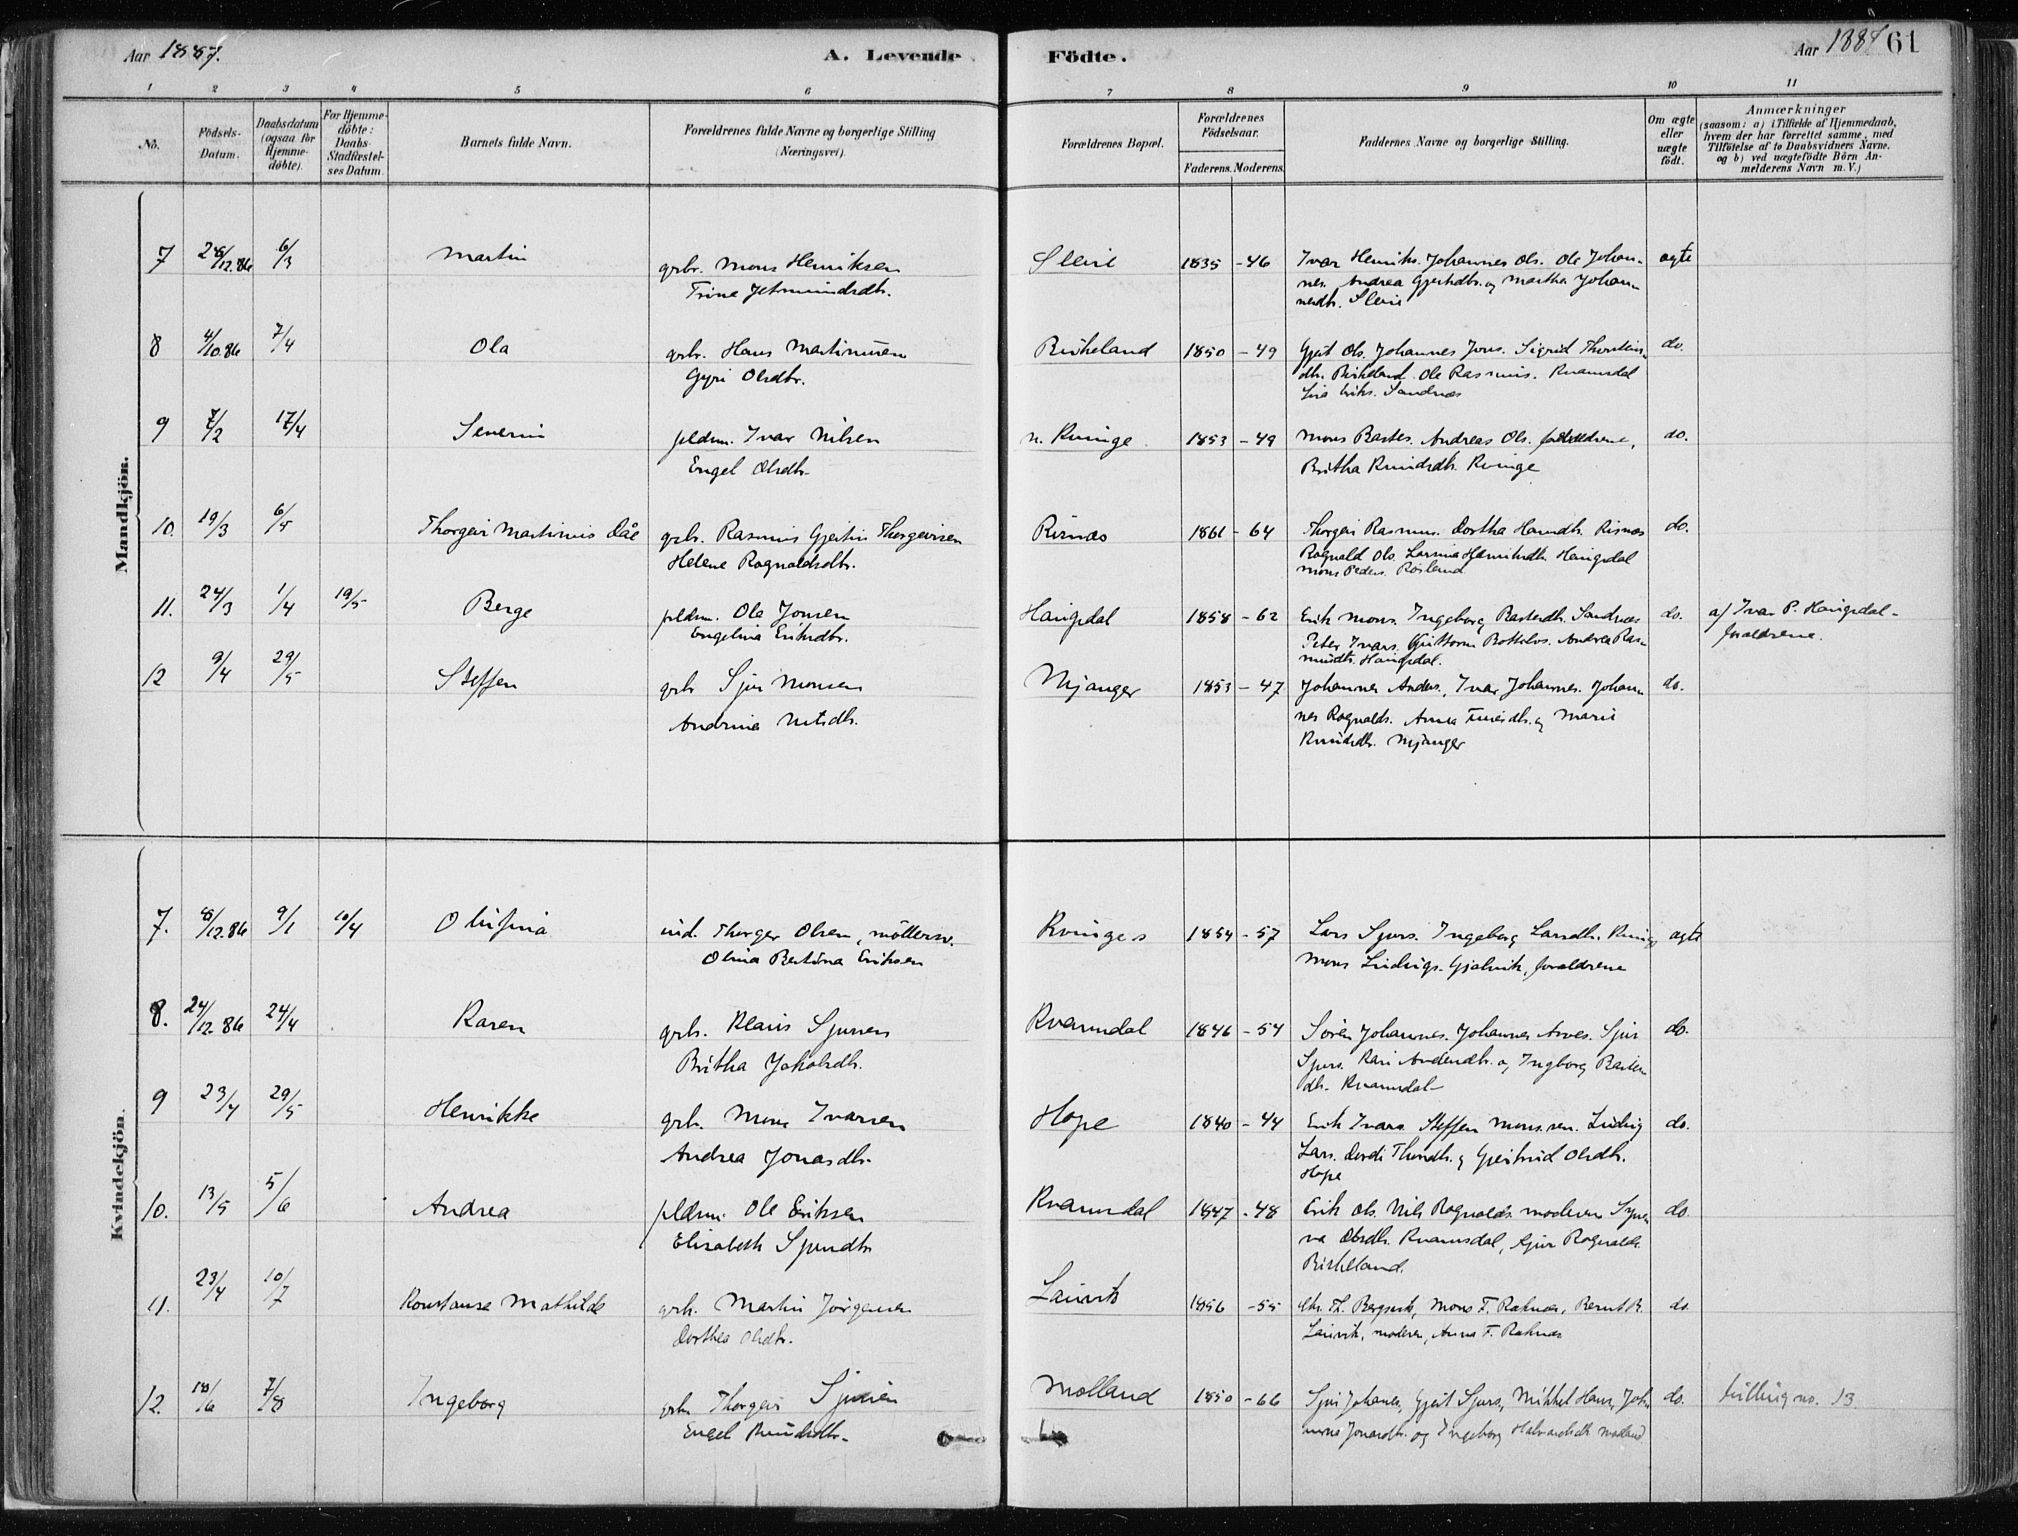 Aar 1887.
A. Levende
Födte.
Aar 1887
61
1 2 3 4 5 6 7 8 9 10 11
No.
Födsels-
Datum.
Daabsdatum
(ogsaa for
Hjemme-
döbte).
For Hjemme-
döbte:
Daabs-
Stadfæstel-
ses Datum.
Barnets fulde Navn.
Forældrenes fulde Navne og borgerlige Stilling
(Næringsvei).
Forældrenes Bopæl.
Forældrenes
Födselsaar.
Faderens. Moderens.
Faddernes Navne og borgerlige Stilling.
Om ægte
eller
uægte
födt.
Anmærkninger
(saasom: a) i Tilfælde af Hjemmedaab,
hvem der har forrettet samme, med
Tilföielse af to Daabsvidners Navne.
og b) ved uægtefödte Börn An-
melderens Navn m.V.)
Mandkjön.
7 28/12.86 6/3 Martin grbr. Mons Henriksen Sleire 1835 - 46 Ivar Henriks. Johannes Ols. Ole Johan- ægte
Trine Jetmundsdtr. nes. Andrea Gjertsdtr. og Martha Johan-
nesdtr. Sleire
8 4/10.86 7/4 Ola grbr. Hans Martinusen Birkeland 1850 - 49 Gjert Ols. Johannes Jons. Sigrid Thorstein- do.
Gyri Olsdtr. dtr. Birkeland Ole Rasmus. Kvamsdal
Eriks. Sandnæs
9 7/2 17/4 Severin pldsm. Ivar Nilsen n. Kvinge 1853 - 49 Mons Bastes. Andreas Ols. forældrene, do.
Engel Olsdtr. Britha Knudsdtr. Kvinge
10. 19/3 6/5 Thorgeir Martinus Dåe grbr. Rasmus Gjertin Thorgeirsen Risnæs 1861 - 64 Thorgeir Rasmus. Dorthea Hansdtr. Risnæs do.
Helene Ragnaldsdtr. Ragnald Ols. Henriksdtr. Haugsdal
Mons Peders.
11. 24/3 1/4 19/5 Berge pldsm. Ole Jonsen Haugsdal 1858 - 62 Erik Mons. Ingeborg Bastesdtr. Sandnæs do. a) Ivar P. Haugsdal -
Engelina Eriksdtr. Peter Ivars. Guttorm Botolvs. Andrea Ras- forældrene.
musdtr. Haugsdal.
12 9/4 29/5 Steffen grbr Sjur Monsen Mjanger 1853 - 47 Johannes Anders., Ivar Johannes. Johan- do.
Andrina Nilsdtr. nes Ragnalds. Anna og Marie
Knudsdtr. Mjanger
Kvindekjön.
7. 8/12.86 9/1 10/4 Olufina ind. Thorger Olsen, möllersv. Kvinge 1854 - 57 Lars Sjurs. Ingeborg Larsdtr. Kvinge ægte
Olina Bertina Eriksen Mons Ludvigs. Gjelvik, forældrene
8. 24/12.86 24/4 Karen grbr. Klaus Sjursen Kvamsdal 1846 - 54 Sören Johannes. Johannes Arnes. Sjur do.
Britha Jakobsdtr. Sjurs. Kari Andersdtr. og Ingborg Bastes-
dtr. Kvamsdal
9 23/4 29/5 Henrikke grbr. Mons Ivarsen Hope 1840 - 44 Erik Ivars. Steffen Mons.sen. Ludvig do.
Andrea Jonasdtr. Lars. Dordi og Gjertrud Olsdtr.
Hope
10. 13/5 5/6 Andrea pldsm. Ole Eriksen Kvamsdal 1847 - 48 Erik Ols. Nils Ragnalds. moderen Syner- do.
Elisabeth Sjursdtr va Olsdtr. Kvamsdal, Sjur Ragnalds.
Birkeland.
11. 23/4 10/7 Konstanse Mathilde grbr. Martin Jörgensen Lauvik 1856 - 55 Chr. Th. Bergsvik, Mons F. Raknæs, Bernt B. do.
Dorthea Olsdtr. Lauvik, moderen, Anna F. Raknæs
12. 18/6 7/8 Ingeborg grbr Thorgeir Sjursen Molland 1850 - 66 Sjur Johannes, Gjert Sjurs, Mikkel Hans, Joh- do. tvilling no. 13
Engel Knudsdtr. anne Jonasdtr. og Ingeborg Halvardsdtr Molland